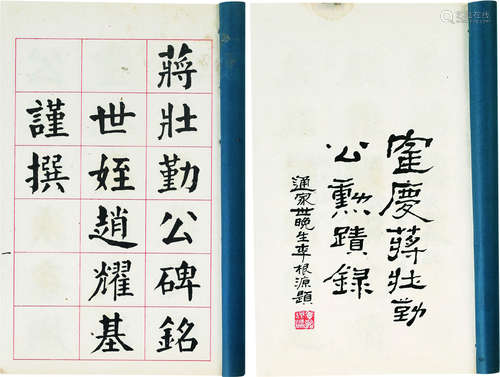 寉慶蔣壯勤
公勳蹟錄
通家世晚生李根源題
蔣壯勤公碑銘
世姪趙耀基
謹撰
一